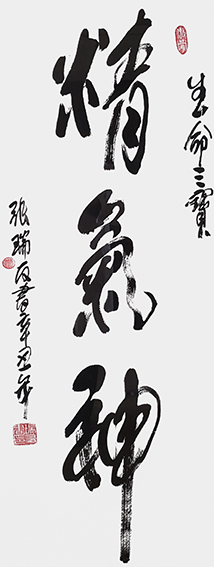 生命三寶
精氣神
張瑞書辛丑年